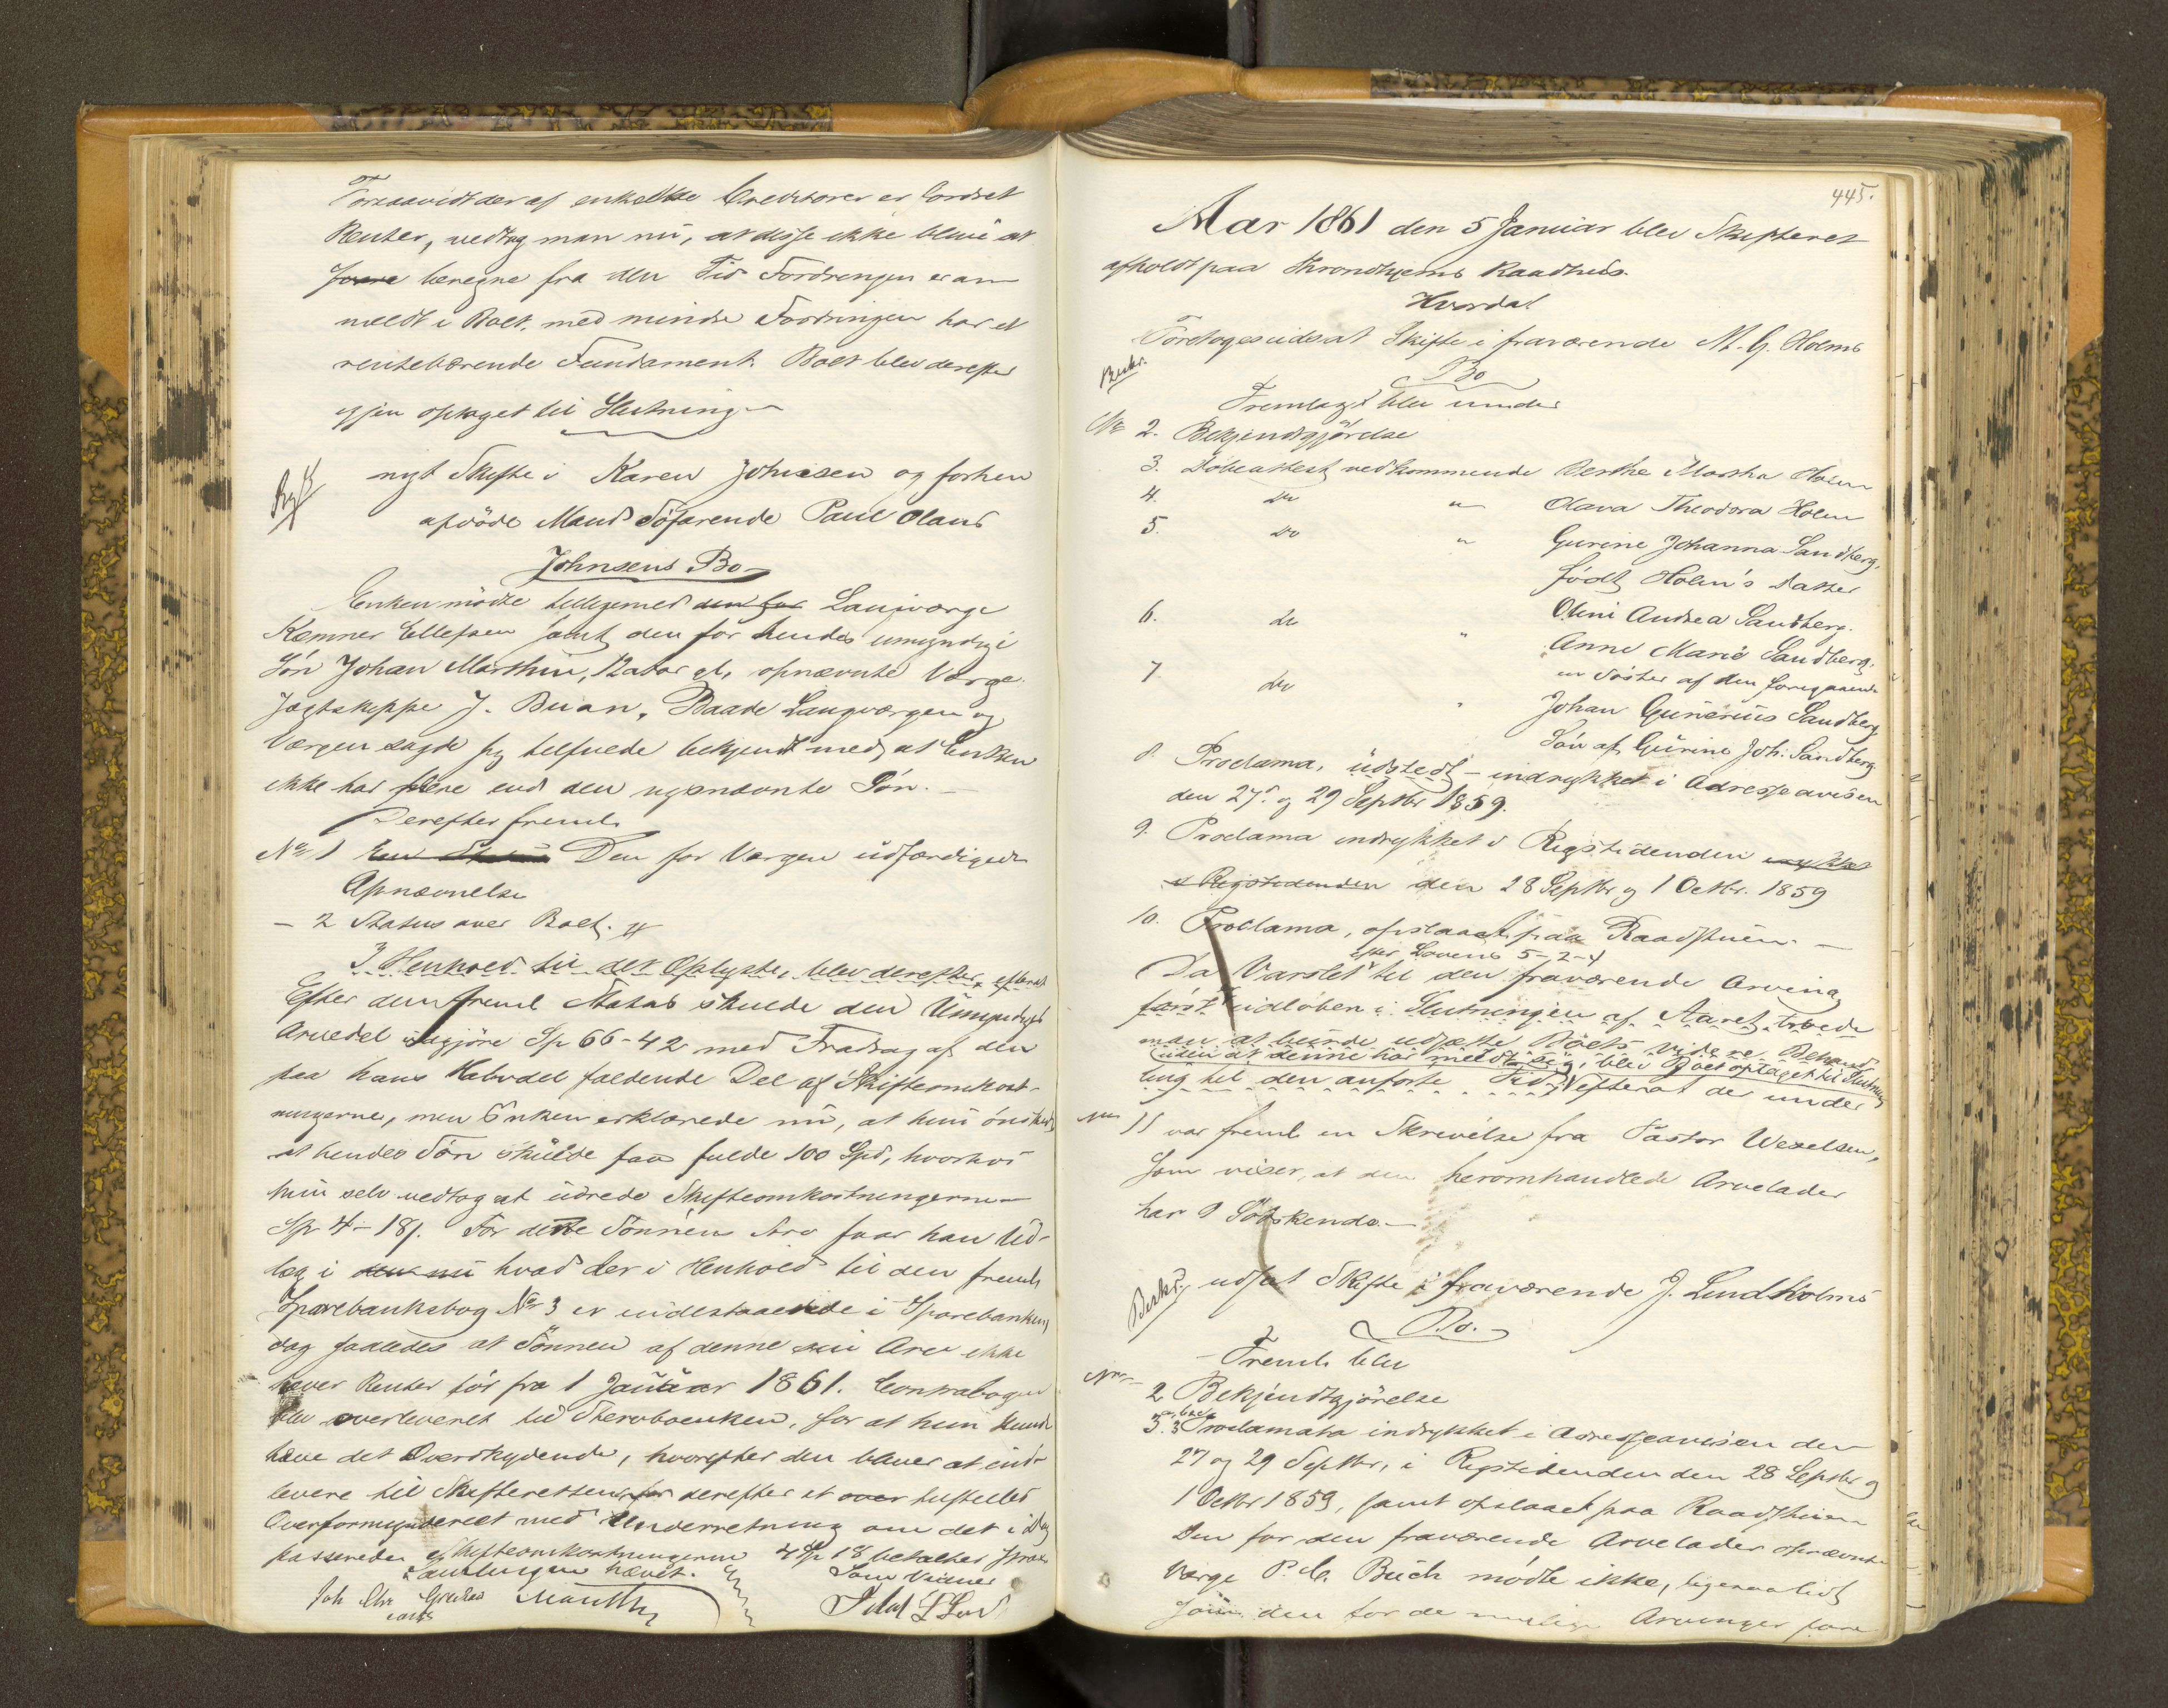 Forsaavidt der af enkelte Creditorer er fordret
Renter, vedtog man nu, at disse ikke blive at
svare beregne fra den Tid Fordringen er an
meldt i Boet, med mindre Fordringen har et
rentebærende Fundament. Boet blev derefter
igjen optaget til Slutning
nyt Skifte i Karen Johnsen og forhen
afdöde Mand Söfarende Paul Olaus
Johnsens Bo
Enken mödte tilligemed den for Laugværge
Kæmner Ellefsen samt den for hendes umyndige
Sön Johan Marthin, 12 aar gl, opnævnte Værge
Jægtskipper J. Buan. Baade Laugværgen og
Værgen sagde sig tilfulde bekjendt med, at Enken
ikke har flere end den nysnævnte Sön.
Derefter freml.
No 1 Den for Værgen udfærdigede
Opnævnelse
- 2 Status over Boet.
I Henhold til det Oplyste, blev derefter
Efter den freml Status skulde den Umyndiges
Arvedel udgjöre Sp 66-42 med Fradrag af den
paa hans Halvdel faldende Del af Skifteomkost-
ningerne, men Enken erklærede nu, at hun önskede
at hendes Sön skulde faa fulde 100 Spd, hvorhos
hun selv vedtog at udrede Skifteomkostningerne
Sp 4-18. For dette Sönnens Arv faar han Ud-
læg i hvad der i Henhold til den freml
Sparebanksbog No 3 er indestaaende i Sparebanken
dog saaledes at Sönnen af denne sin Arv ikke
hæver Renter för fra 1 Januar 1861. Contrabogen
blev overleveret til Stervboenken, for at hun kunde
hæve det Overskydende, hvorefter den bliver at ind-
levere til Skifteretten for derefter at over tilstilles
Overformynderiet med Underretning om det i Dag
passerede. Skifteomkostningerne 4 Sp 18 betaltes strax
Samlingen hævet.
Som Vidner
445.
Aar 1861 den 5 Januar blev Skifteret
afholdt paa Throndhjems Raadhus.
Hvorda
Foretoges udsat Skifte i fraværende M. G. Holms
Beskr.
Bo
Fremlagt blev under
No 2. Bekjendtgjörelse
3. Döbeattest vedkommende Berthe Martha Holm
4. do " Olava Theodora Holm
5. do " Gurine Johanna Sandberg,
födt Holm's Datter
6. do Oline Andrea Sandberg.
" Anne Marie Sandberg,
en Söster af den foregaaende
7 do " Johan Gunerius Sandberg
Sön af Gurine Joh. Sandberg
8. Proclama, udstedt - indrykket i Adresseavisen
den 27de og 29 Septbr 1859.
9. Proclama indrykket i Rigstidenden indrykket
i Rigstidenden den 28 Septbr og 1 Octbr. 1859
10. Proclama, opslaaet paa Raadstuen. -
efter Lovens 5-2-4
Da Varslet til den fraværende Arving
först udlöber i Slutningen af Aaret, troede
man at burde udsætte Boets videre Behand
uden at denne har meldt sig, blev Boet optaget til Slutning
ling til den anförte Tid, efterat der under
No 11 var freml en Skrivelse fra Pastor Wexelsen,
som viser, at den heromhandlede Arvelader
har 9 Södskende.-
Beskr. udsat Skifte i fraværende J. Lindholms
Bo.
Freml. blev
No 2 Bekjendtgjörelse
3. 3 Proclamata indrykket i Adresseavisen den
27 og 29 Septbr, i Rigstidenden den 28 Septbr og
1 Octbr 1859, samt opslaaet paa Raadstuen
Den for den fraværende Arvelader opnævnte
Værge P. C. Buch mödte ikke, ligesaalidt
som den for de mulige Arvinger